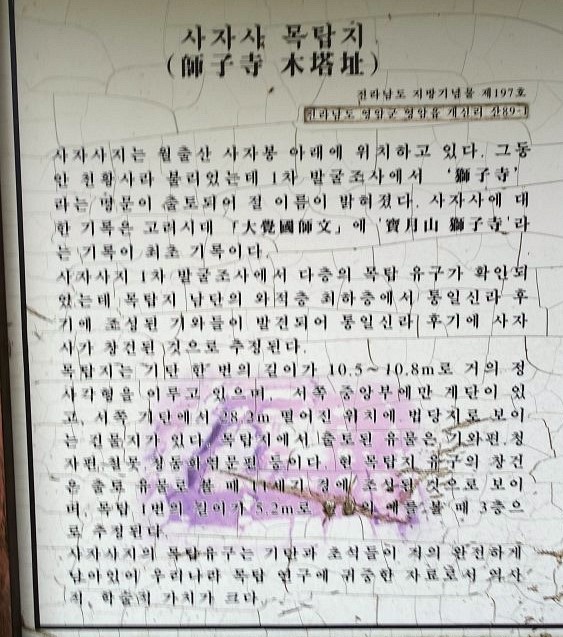 사자사 목탑지
(師子寺 木塔址)
전라남도 지방기념물 제197호
전라남도 영암군 영암읍 개신리 산89-1
사자사지는 월출산 사자봉 아래에 위치하고 있다. 그동
안 천황사라 불리었는데 1차 발굴조사에서 '獅子寺'
라는 명문이 출토되어 절 이름이 밝혀졌다. 사자사에 대
한 기록은 고려시대 「大覺國師文」에 '寶月山 獅子寺'라
는 기록이 최초 기록이다.
사자사지 1차 발굴조사에서 다층의 목탑 유구가 확인되
었는데 목탑지 남단의 와적층 최하층에서 통일신라 후
기에 조성된 기와들이 발견되어 통일신라 후기에 사자
사가 창건된 것으로 추정된다.
목탑지는 기단 한 변의 길이가 10.5~10.8m로 거의 정
사각형을 이루고 있으며, 서쪽 중앙부에만 계단이 있
고, 서쪽 기단에서 28.2m 떨어진 위치에 법당지로 보이
는 건물지가 있다. 목탑지에서 출토된 유물은 기와편,청
자편,철못,청동 등이다. 현 목탑지 유구의 창건
은 출토 유물로 볼 때 11세기 경에 조성된 것으로 보이
며, 목탑 1변의 길이가 5.2m로 의 예를 볼 때 3층으
로 추정된다.
사자사지의 목탑유구는 기단과 초석들이 거의 완전하게
남아있어 우리나라 목탑 연구에 귀중한 자료로서 역사
적, 학술적 가치가 크다.